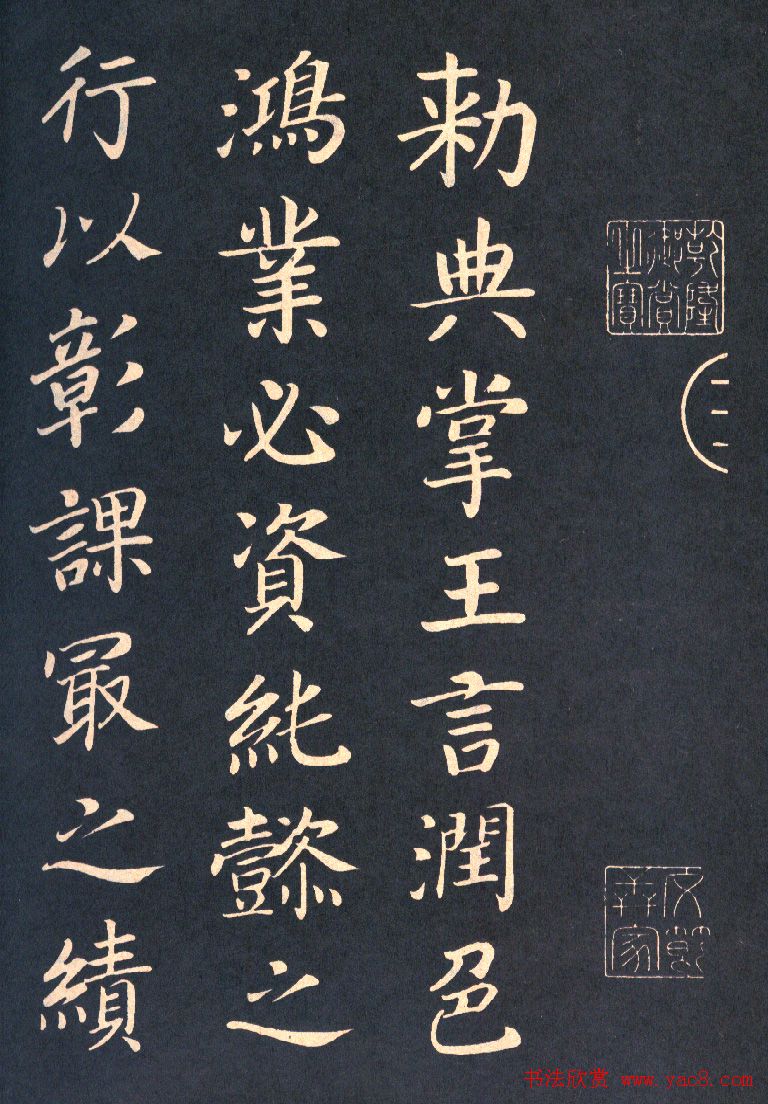 勑典掌王言潤色
鴻業必資純懿之
行以彰課冣之績
乾隆御賞之寶
书法欣赏 www.yac8.com